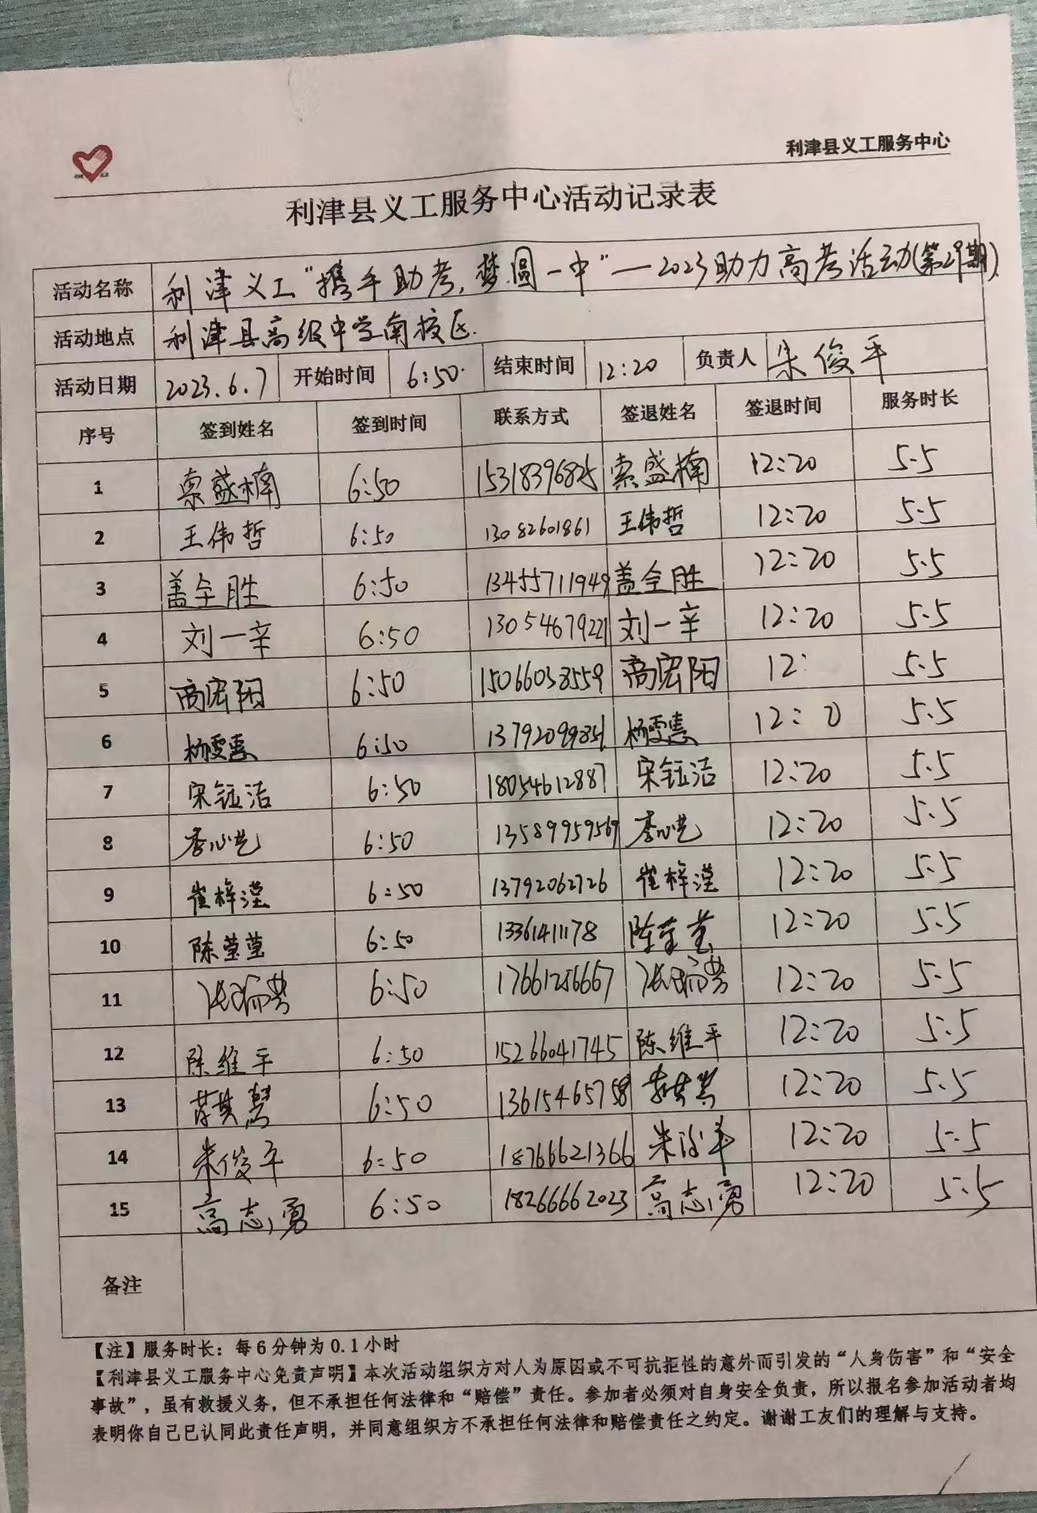 利津县义工服务中心
利津县义工服务中心活动记录表
活动名称 利津义工“携手助考,梦圆一中”—2023助力高考活动(第29期)
活动地点 利津县高级中学南校区.
活动日期 2023.6.7 开始时间 6:50. 结束时间 12:20 负责人 朱俊平
序号 签到姓名 签到时间 联系方式 签退姓名 签退时间 服务时长
1 索盛楠 6:50 15318396825 索盛楠 12:20 5.5
2 王伟哲 6:50 13082601861 王伟哲 12:20 5.5
3 盖全胜 6:50 13455711949 盖全胜 12:20 5.5
4 刘一辛 6:50 13054679221 刘一辛 12:20 5.5
5 商宏阳 6:50 15066033559 商宏阳 12: 5.5
6 杨雯惠 6:50 杨雯惠 12: 0 5.5
7 宋钰洁 6:50 18054612887 宋钰洁 12:20 5.5
8 李心艺 6:50 13589959569 李心艺 12:20 5.5
9 崔梓滢 6:50 13792062726 崔梓滢 12:20 5.5
10 陈莹莹 6:50 1336141178 陈莹莹 12:20 5.5
11 6:50 17661256667 12:20 5.5
12 陈维平 6:50 15266041745 陈维平 12:20 5.5
13 6:50 13615465758 12:20 5.5
14 朱俊平 6:50 18766621366 朱俊平 12:20 5.5
15 高志勇 6:50 18266662023 高志勇 12:20 5.5
备注
【注】服务时长：每6分钟为0.1小时
【利津县义工服务中心免责声明】本次活动组织方对人为原因或不可抗拒性的意外而引发的“人身伤害”和“安全
事故”，虽有救援义务，但不承担任何法律和“赔偿”责任。参加者必须对自身安全负责，所以报名参加活动者均
表明你自己已认同此责任声明，并同意组织方不承担任何法律和赔偿责任之约定。谢谢工友们的理解与支持。